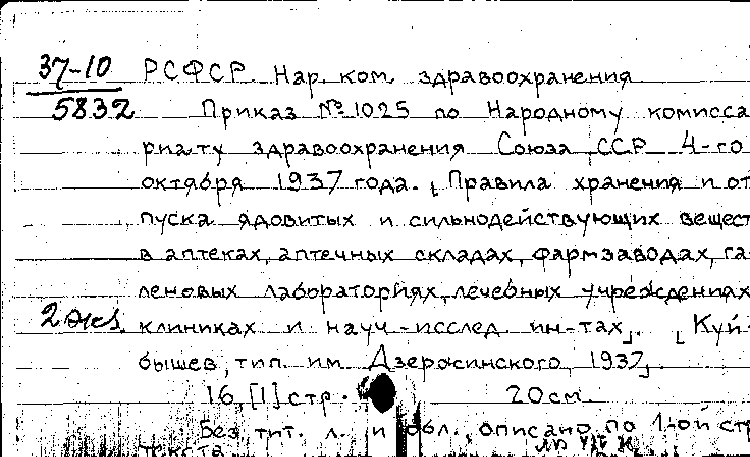 37-10 РСФСР. Нар. ком. здравоохранения
5832 Приказ № 1025 по Народному комисса
риату здравоохранения Союза ССР 4-го
октября 1937 года. [Правила хранения и от
пуска ядовитых и сильнодействующих вещест
в аптеках, аптечных складах, фармзаводах, га-
леновых лабораториях, лечебных учреждениях
2 экз. клиниках и науч.-исслед. ин-тах]. [Куй-
бышев, тип. им. Дзержинского, 1937].
16, [1] стр. 20 см.
Без тит. л. и обл., описано по 1-ой стр
текста